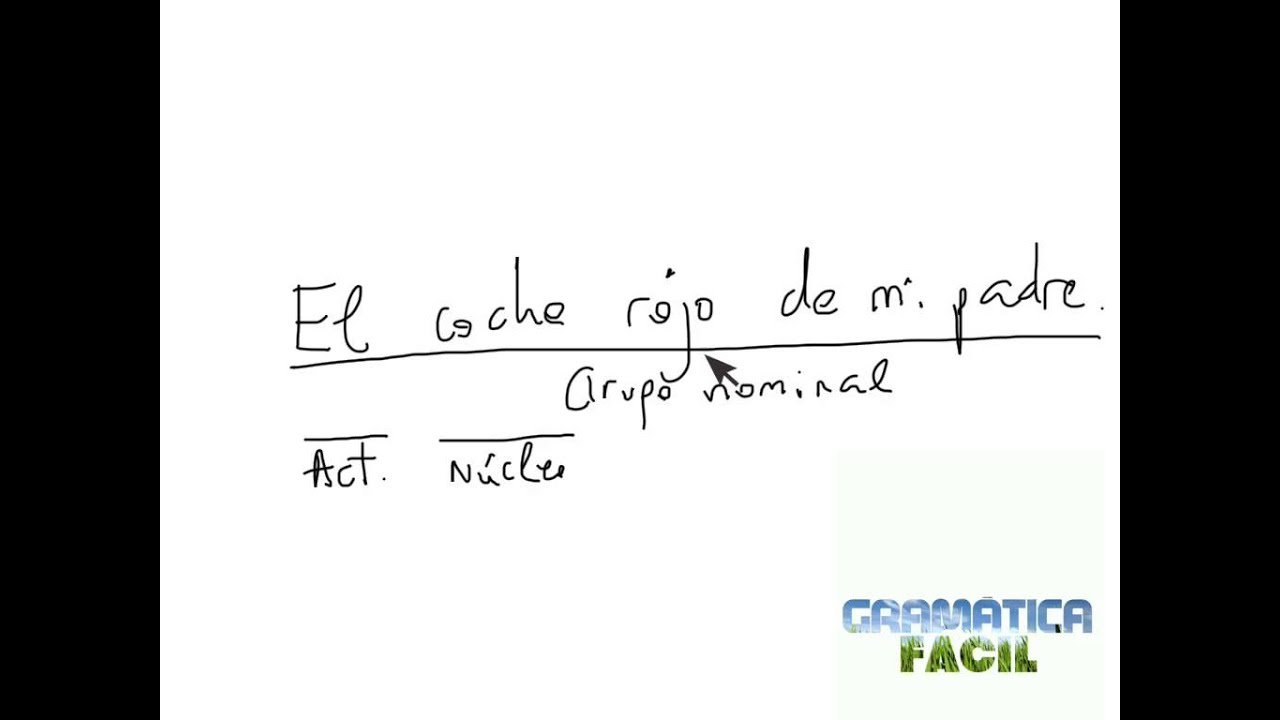 El coche rojo de mi padre.
Grupo nominal
Act. Núcleo
GRAMÁTICA
FÁCIL